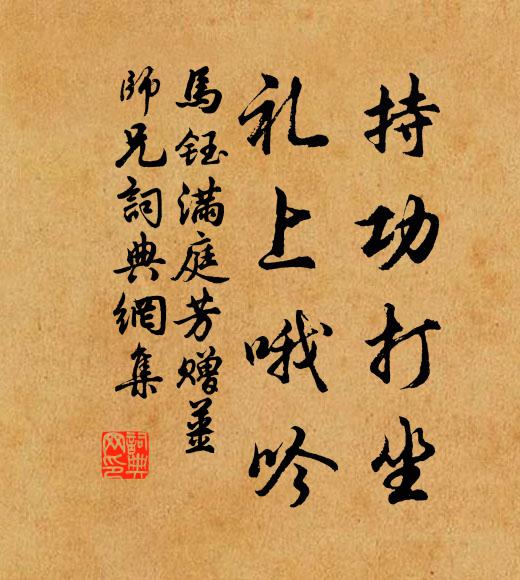 持功打坐
礼上哦吟
馬鈺滿庭芳贈薑
師兄詞典網集
詞典網印